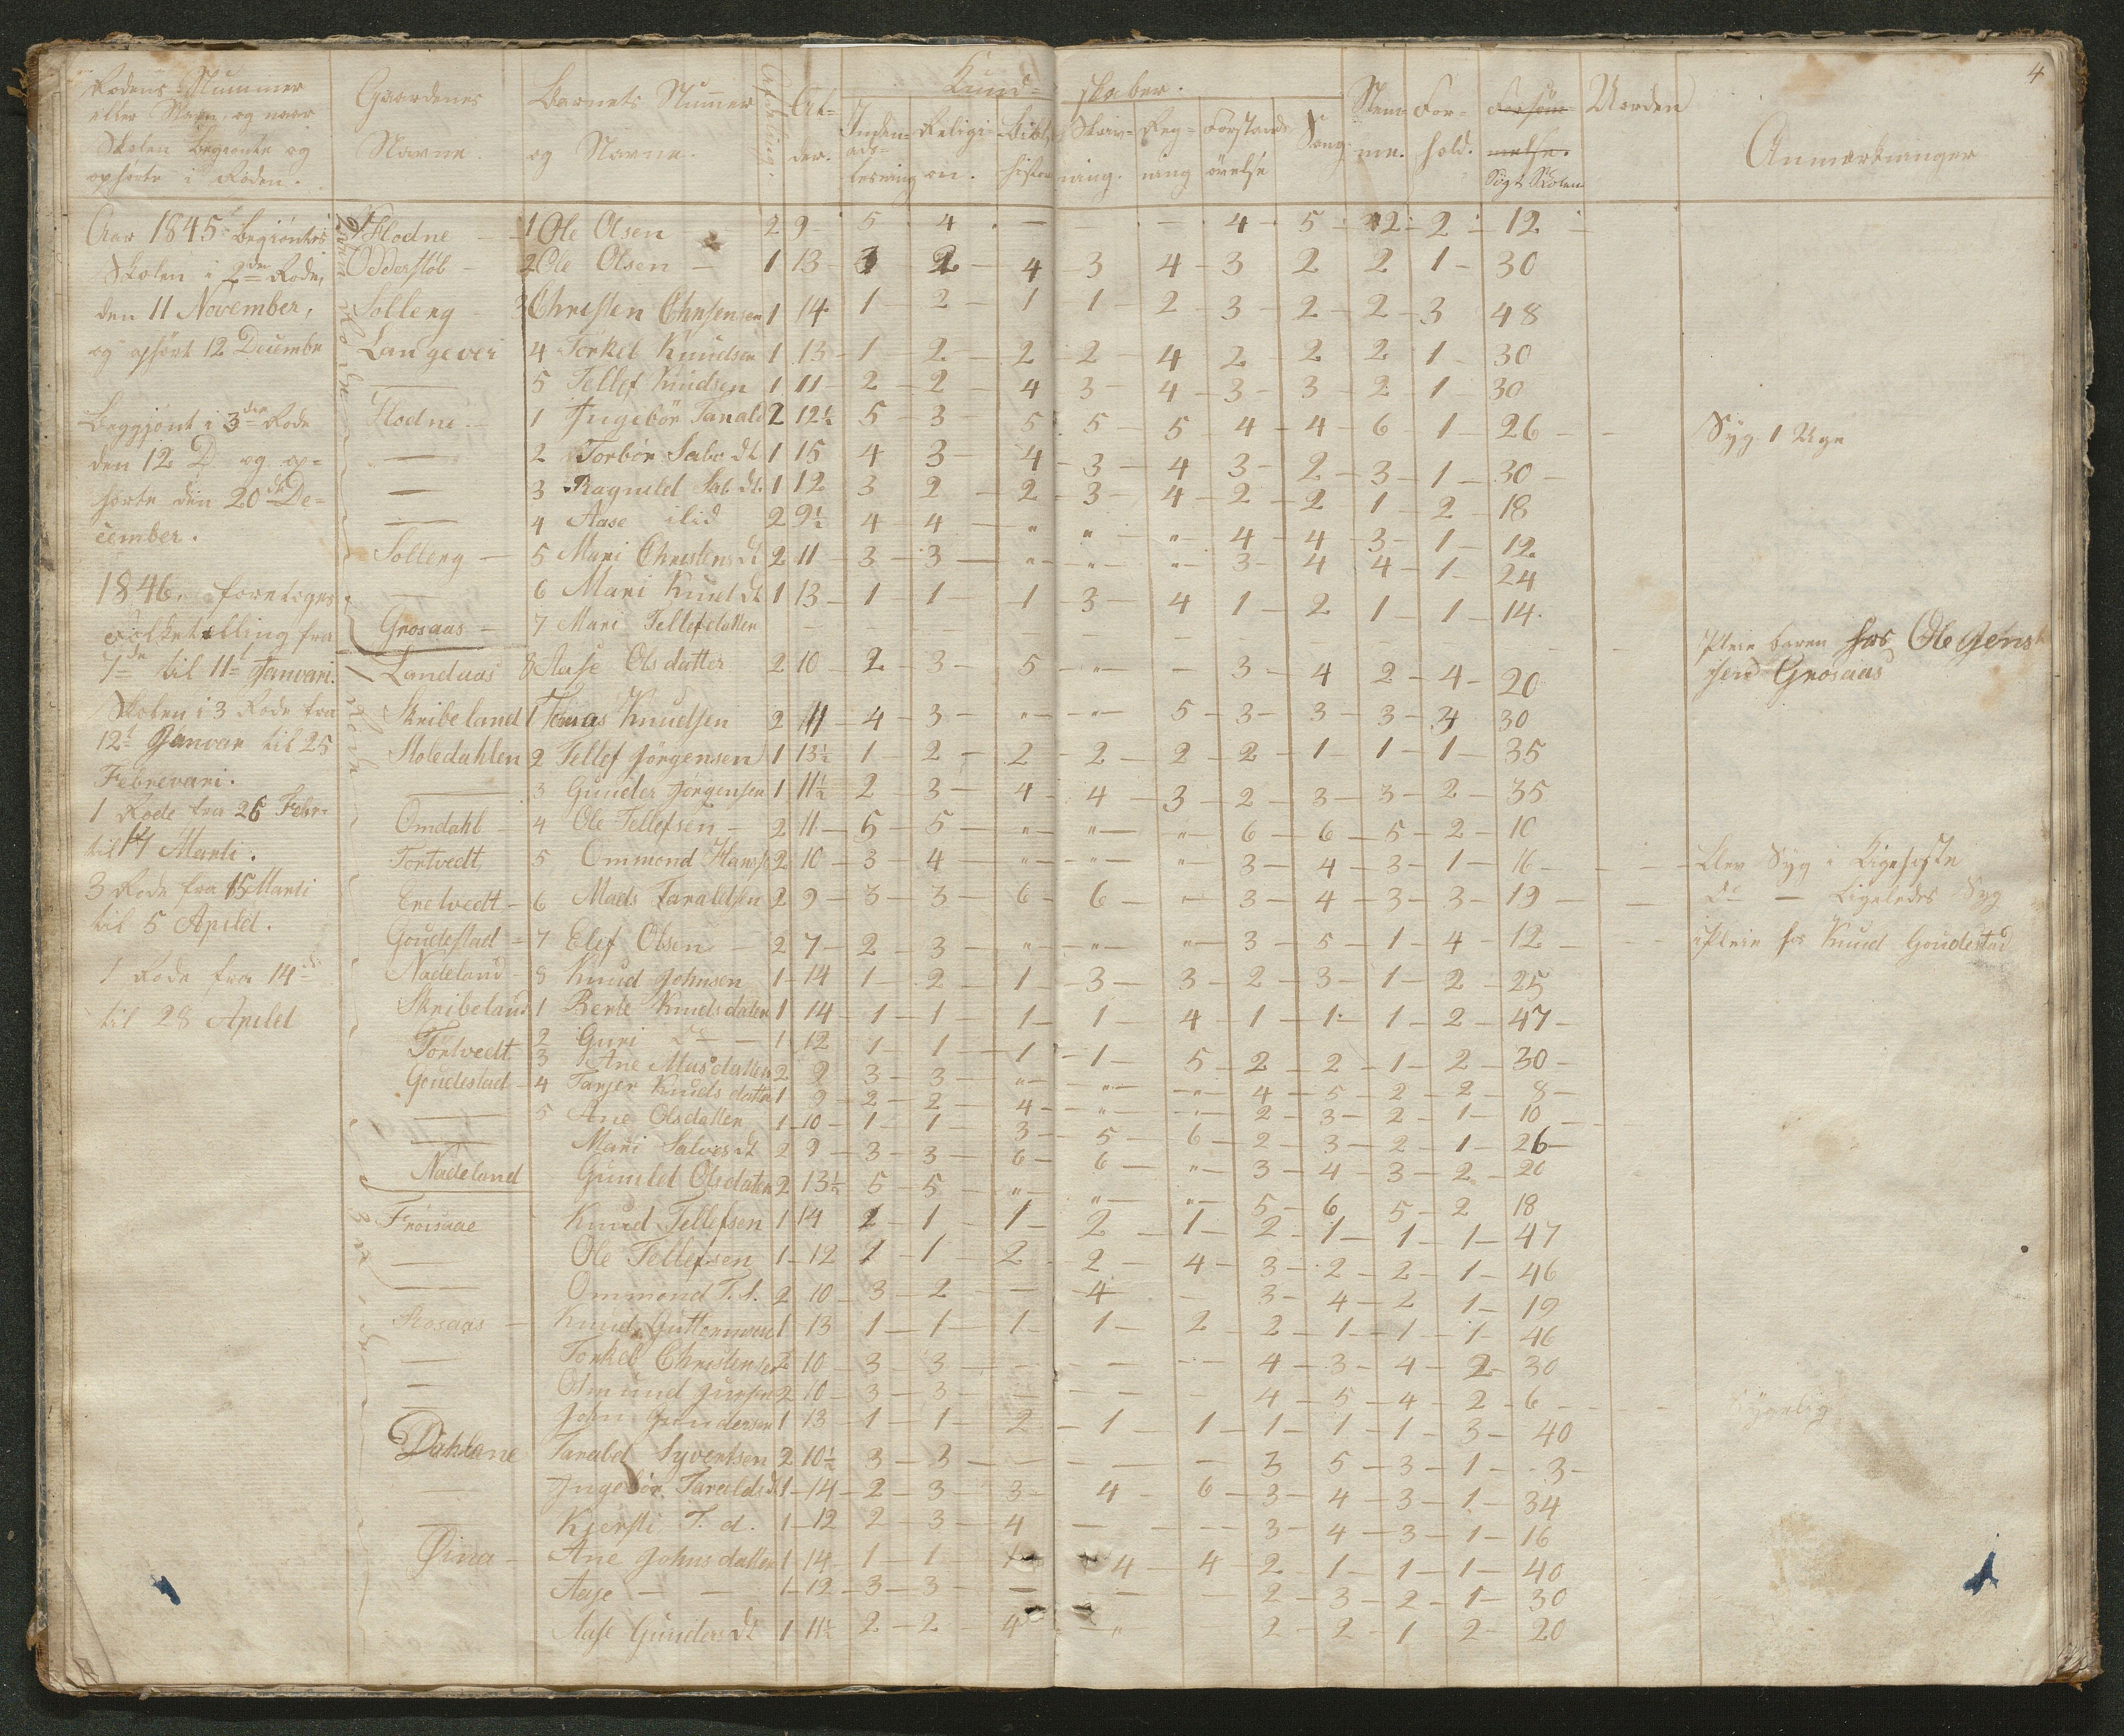 4
Rodens Nummer
eller Navn, og naar
Skolen begyndte og
ophørte i Roden.
Gaardenes
Navne.
Barnets Nummer
og Navne.
Afdeling.
Al-
der.
Kund-
skaber.
Inden-
ads-
læsning
Religi-
on.
Bibl.
histori
Skriv-
ning.
Reg-
ning
Forstands
øvelse
Sang
Nem-
me.
For-
hold.
Forsøm-
melse.
Søgt Skolen
Verden
Anmærkninger
Aar 1845 begyntes
Skolen i 2den Rode,
den 11 November,
og ophørt 12 Decembr
Begyønt i 3den Rode
den 12 D. og op-
hørte den 20de De-
cember.
1846. foretoges
Folketælling fra
7de til 11te Januari.
Skolen i 3 Rode fra
12t Januar til 25
Febrevari.
1 Rode fra 26 Febr.
til 14 Marti.
3 Rode fra 15 Marti
til 5 Apriel.
1 Rode fra 14de
til 28 Apriel
Flodne - 1 Ole Olsen 2 9 5 4 - - 4 5 2 2 12
Odderstøb - 2 Ole Olsen - 1 13 3 2 4 3 4 3 2 2 1 30
Solleng - 3 Christen Christensen 1 14 1 2 1 1 2 3 2 2 3 48
Langevei 4 Torkel Knudsen 1 13 1 2 2 2 4 2 2 2 1 30
— 5 Tellef Knudsen 1 11 2 2 4 3 4 3 3 2 1 30
Flodne - 1 Ingebör Tarald 2 12½ 5 3 5 5 5 4 4 6 1 26 Syg 1 Uge
— 2 Torbör Salv dt 1 15 4 3 4 3 4 3 2 3 1 30
— 3 Ragnild Sal. dt. 1 12 3 2 2 3 4 2 2 1 2 18
— 4 Aase ilid 2 9½ 4 4 " " " 4 4 3 1 12
Solleng - 5 Mari Christens dt 2 11 3 3 " " " 3 4 4 1 24
— 6 Mari Knud dt 1 13 1 1 1 3 4 1 2 1 1 14
Grosaas - 7 Mari Tellefdatter - - - - - Pleie baren hos Ole Jens
sen Grosaas
Landaas 8 Aase Olsdatter 2 10 2 3 5 " - 3 4 2 4 20
Skribeland 1 Tomas Knudsen 2 11 4 3 " " 5 3 3 3 4 30
Stoledahlen 2 Tellef Jörgensen 1 13½ 1 2 2 2 2 2 1 1 1 35
— 3 Gunder Jörgensen 1 11½ 2 3 4 4 3 2 3 3 2 35
Omdahl - 4 Ole Tellefsen - 2 11 5 5 " " " 6 6 5 2 10
Tortvedt 5 Ommond Hans 2 10 3 4 " " " 3 4 3 1 16 Blev Syg i Kighoste
Eretvedt - 6 Mads Taraldsen 2 9 3 3 6 6 " 3 4 3 3 19 do — Ligeledes Syg
Goudestad - 7 Elef Olsen - 2 7 2 3 " " " 3 5 1 4 12 i Pleie hos Knud Goudestad
Nadeland - 8 Knud Johnsen 1 14 1 2 1 3 3 2 3 1 2 25
Skribeland 1 Berte Knudsdatter 1 14 1 1 1 1 4 1 1 1 2 47
2 Guri do — 1 12 1 1 1 1 5 2 2 1 2 30
Tortvedt 3 Ane Mas datter 2 9 3 3 " " " 4 5 2 2 8
Goudestad - 4 Tarjer Knudsdatter 1 9 2 2 4 " " 2 3 2 1 10
— 5 Ane Olsdatter 1 10 1 1 3 5 6 2 3 2 1 26
— Mari Salves dt 2 9 3 3 6 6 " 3 4 3 2 20
Nadeland Gunild Olsdatter 2 13½ 5 5 " " " 5 6 5 2 18
Fröisaae Knud Tellefsen 1 14 1 1 1 2 1 2 1 1 1 47
— Ole Tellefsen 1 12 1 1 2 2 4 3 2 2 1 46
— Ommond T. s. 2 10 3 2 - 4 - 3 4 2 1 19
Stosaas - Knud Guttormsen 1 13 1 1 1 1 2 2 1 1 1 46
— Torkel Christensen 2 10 3 3 - - - 4 3 4 2 30
— Osmund 2 10 3 3 - - - 4 5 4 2 6 Sygelig
— John Gundersen 1 13 1 1 2 1 1 1 1 1 3 40
Dahlane Tarald Syvertsen 2 10½ 3 3 - - - 3 5 3 1 3
— Ingebör Taralds dt 1 14 2 3 3 4 6 3 4 3 1 34
— Kjersti T. d. 1 12 2 3 4 - - 3 4 3 1 16
Øina - Ane Johnsdatter 1 14 1 1 1 4 4 2 1 1 1 40
Aase — — 1 12 3 3 - - - 2 3 2 1 30
Aase Gunders dt 1 11½ 2 2 4 " 2 2 1 2 20